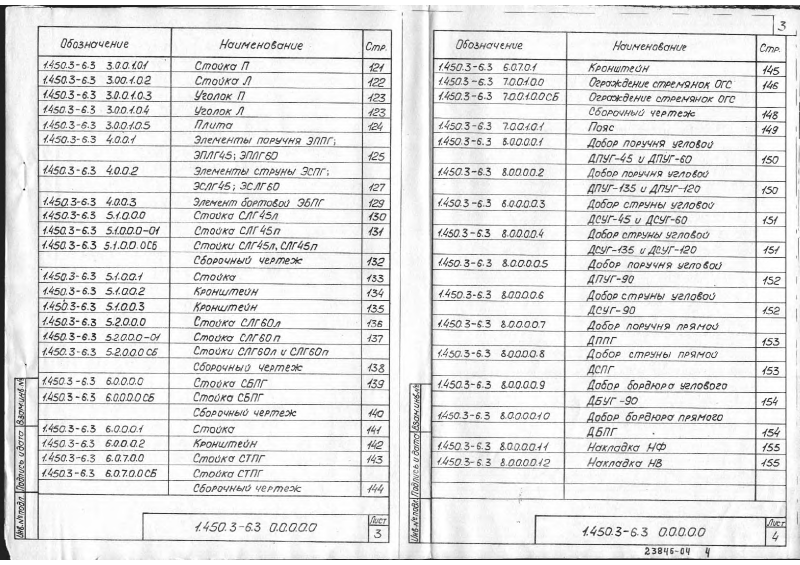 Обозначение Наименование Стр.
1.450.3-6.3 3.0.0.1.0.1 Стойка П 121
1.450.3-6.3 3.0.0.1.0.2 Стойка Л 122
1.450.3-6.3 3.0.0.1.0.3 Уголок П 123
1.450.3-6.3 3.0.0.1.0.4 Уголок Л 123
1.450.3-6.3 3.0.0.1.0.5 Плита 124
1.450.3-6.3 4.0.0.1 Элементы поручня ЭППГ;
ЭПЛГ45; ЭПЛГ60 125
1.450.3-6.3 4.0.0.2 Элементы струны ЭСПГ;
ЭСЛГ45; ЭСЛГ60 127
1.450.3-6.3 4.0.0.3 Элемент бортовой ЭБПГ 129
1.450.3-6.3 5.1.0.0.0 Стойка СЛГ45л 130
1.450.3-6.3 5.1.0.0.0-01 Стойка СЛГ45п 131
1.450.3-6.3 5.1.0.0.0СБ Стойки СЛГ45л, СЛГ45п
Сборочный чертеж 132
1.450.3-6.3 5.1.0.0.1 Стойка 133
1.450.3-6.3 5.1.0.0.2 Кронштейн 134
1.450.3-6.3 5.1.0.0.3 Кронштейн 135
1.450.3-6.3 5.2.0.0.0 Стойка СЛГ60л 136
1.450.3-6.3 5.2.0.0.0-01 Стойка СЛГ60п 137
1.450.3-6.3 5.2.0.0.0СБ Стойки СЛГ60л и СЛГ60п
Сборочный чертеж 138
1.450.3-6.3 6.0.0.0.0 Стойка СБПГ 139
1.450.3-6.3 6.0.0.0.0СБ Стойка СБПГ
Сборочный чертеж 140
1.450.3-6.3 6.0.0.0.1 Стойка 141
1.450.3-6.3 6.0.0.0.2 Кронштейн 142
1.450.3-6.3 6.0.7.0.0 Стойка СТПГ 143
1.450.3-6.3 6.0.7.0.0СБ Стойка СТПГ
Сборочный чертеж 144
Инв.№подл. Подпись и дата Взам.инв.№
1.450.3-6.3 0.0.0.0.0
Лист
3
3
Обозначение Наименование Стр.
1.450.3-6.3 6.0.7.0.1 Кронштейн 145
1.450.3-6.3 7.0.0.1.0.0 Ограждение стремянок ОГС 146
1.450.3-6.3 7.0.0.1.0.0СБ Ограждение стремянок ОГС
Сборочный чертеж 148
1.450.3-6.3 7.0.0.1.0.1 Пояс 149
1.450.3-6.3 8.0.0.0.0.1 Добор поручня угловой
ДПУГ-45 и ДПУГ-60 150
1.450.3-6.3 8.0.0.0.0.2 Добор поручня угловой
ДПУГ-135 и ДПУГ-120 150
1.450.3-6.3 8.0.0.0.0.3 Добор струны угловой
ДСУГ-45 и ДСУГ-60 151
1.450.3-6.3 8.0.0.0.0.4 Добор струны угловой
ДСУГ-135 и ДСУГ-120 151
1.450.3-6.3 8.0.0.0.0.5 Добор поручня угловой
ДПУГ-90 152
1.450.3-6.3 8.0.0.0.0.6 Добор струны угловой
ДСУГ-90 152
1.450.3-6.3 8.0.0.0.0.7 Добор поручня прямой
ДППГ 153
1.450.3-6.3 8.0.0.0.0.8 Добор струны прямой
ДСПГ 153
1.450.3-6.3 8.0.0.0.0.9 Добор бордюра углового
ДБУГ-90 154
1.450.3-6.3 8.0.0.0.0.10 Добор бордюра прямого
ДБПГ 154
1.450.3-6.3 8.0.0.0.0.11 Накладка НФ 155
1.450.3-6.3 8.0.0.0.0.12 Накладка НВ 155
Инв.№подл. Подпись и дата Взам.инв.№
1.450.3-6.3 0.0.0.0.0
Лист
4
23846-04 4